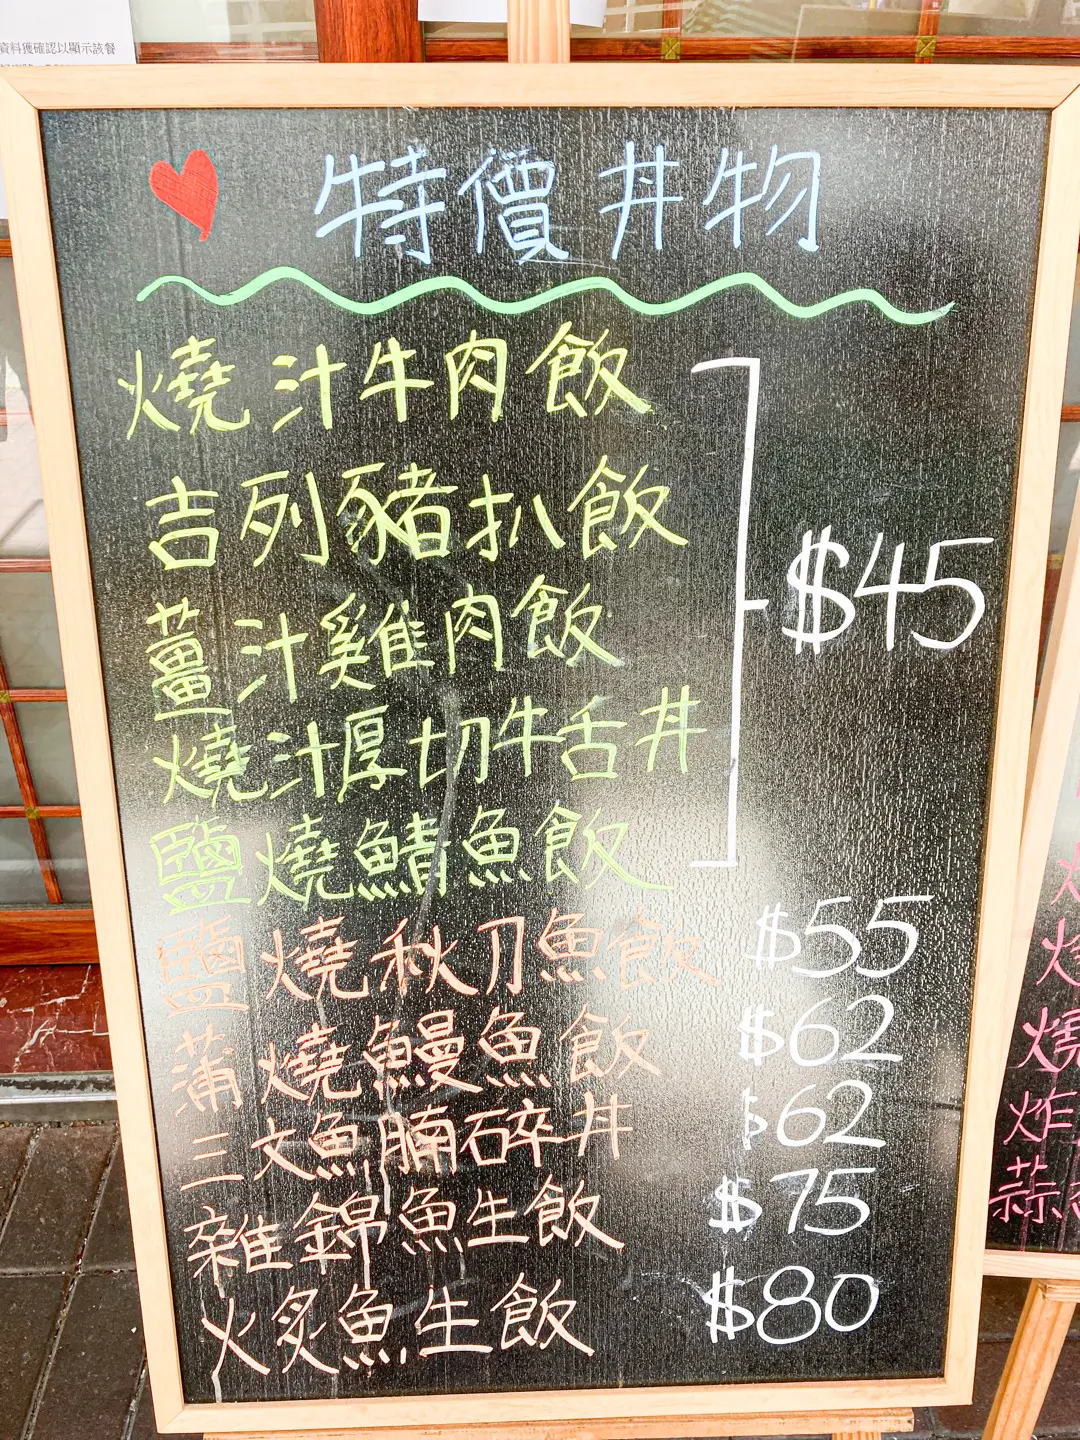 資料獲確認以顯示該餐
特價丼物
燒汁牛肉飯
吉列豬扒飯
薑汁雞肉飯
燒汁厚切牛舌丼
鹽燒鯖魚飯
$45
鹽燒秋刀魚飯 $55
蒲燒鰻魚飯 $62
三文魚腩碎丼 $62
雜錦魚生飯 $75
火炙魚生飯 $80
燒
炸
蒜